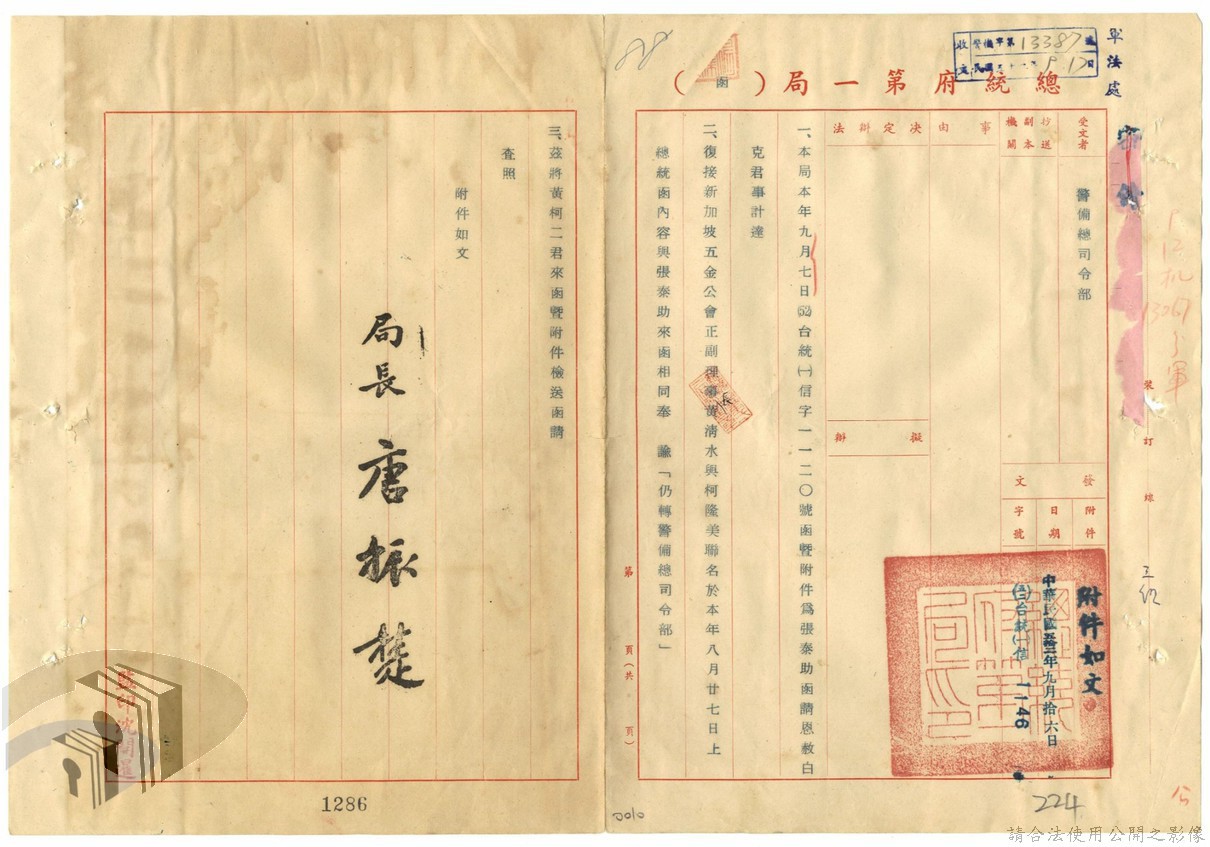 軍法處
收文 警備字第13387號
密件
總統府第一局(函)
受文者
警備總司令部
抄送副本機關
事由
決定辦法
擬辦
發文
附件
附件如文
日期
中華民國五十二年九月拾六日
字號
(52)台統㈠信 1146
一、本局本年九月七日(52)台統㈠信字一一二〇號函暨附件為張泰助函請恩赦白
克君事計達
二、復接新加坡五金公會正副理事黃清水與柯隆美聯名於本年八月廿七日上
總統函內容與張泰助來函相同奉 諭「仍轉警備總司令部」
三、茲將黃柯二君來函暨附件檢送函請
查照
附件如文
局長 唐振楚
裝
訂
線
第 頁(共 頁)
224
1286
請合法使用公開之影像